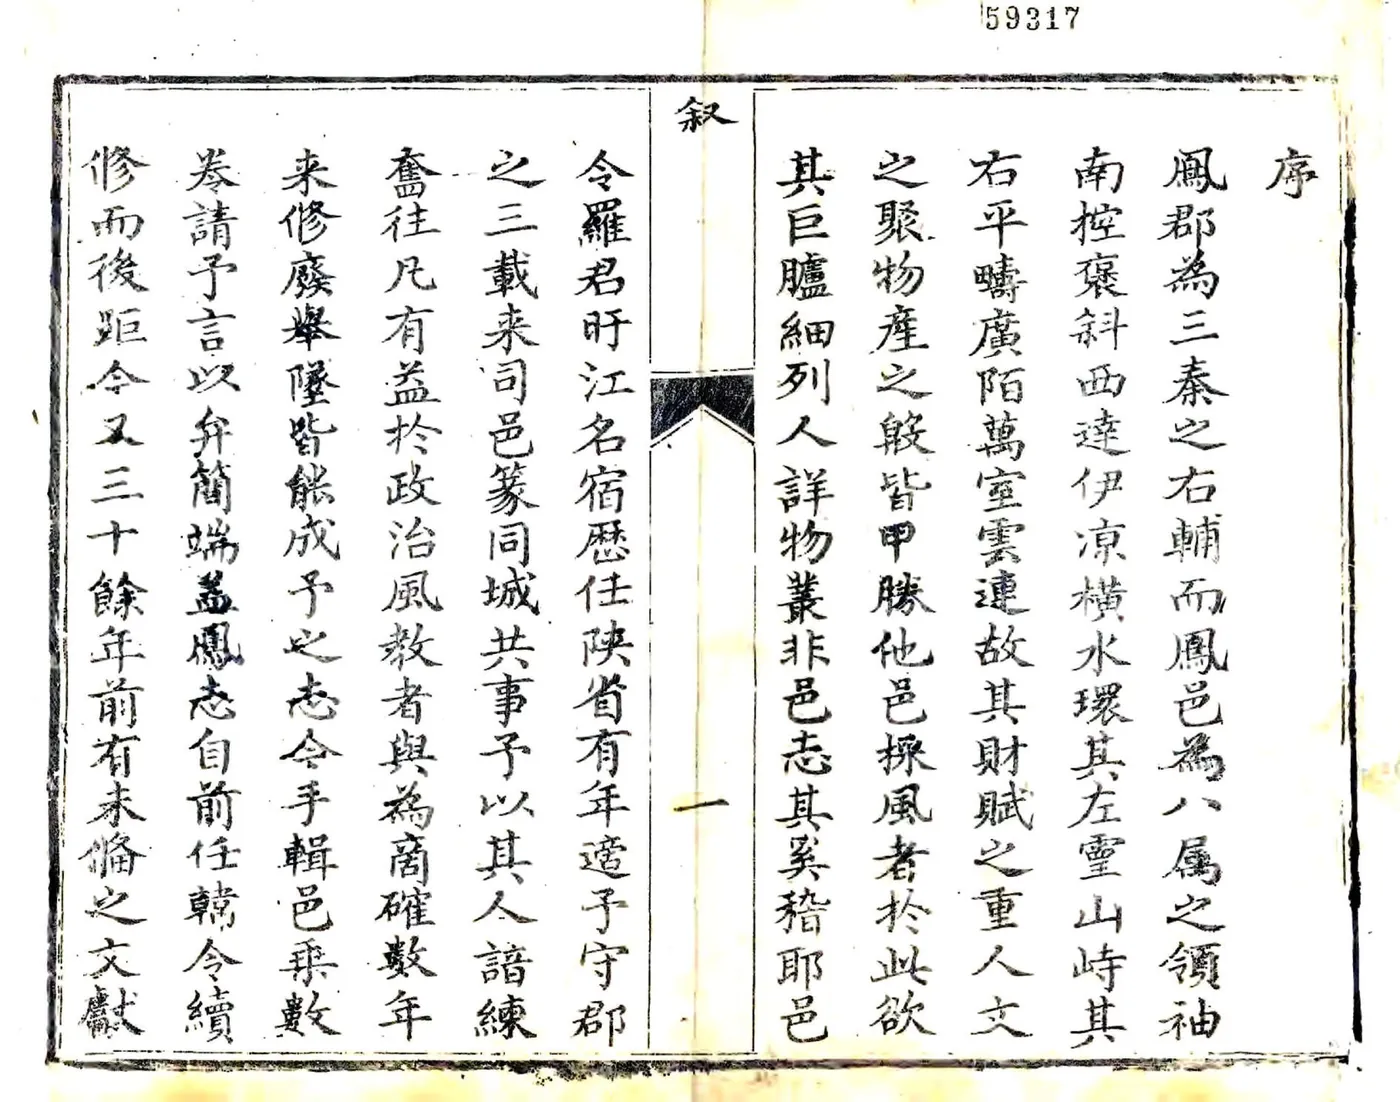 59317
序
鳳郡為三秦之右輔而鳳邑為八属之領袖
南控褒斜西達伊凉橫水環其左靈山峙其
右平疇廣陌萬室雲連故其財賦之重人文
之聚物產之殷皆甲勝他邑採風者於此欲
其巨臚細列人詳物叢非邑志其奚稽耶邑
叙
一
令羅君旴江名宿歷任陕省有年適予守郡
之三載来司邑篆同城共事予以其人諳練
奮往凡有益於政治風教者與為商確數年
来修廢舉墜皆能成予之志令手輯邑乗數
卷請予言以弁簡端盖鳳志自前任韓令續
修而後距今又三十餘年前有未備之文獻